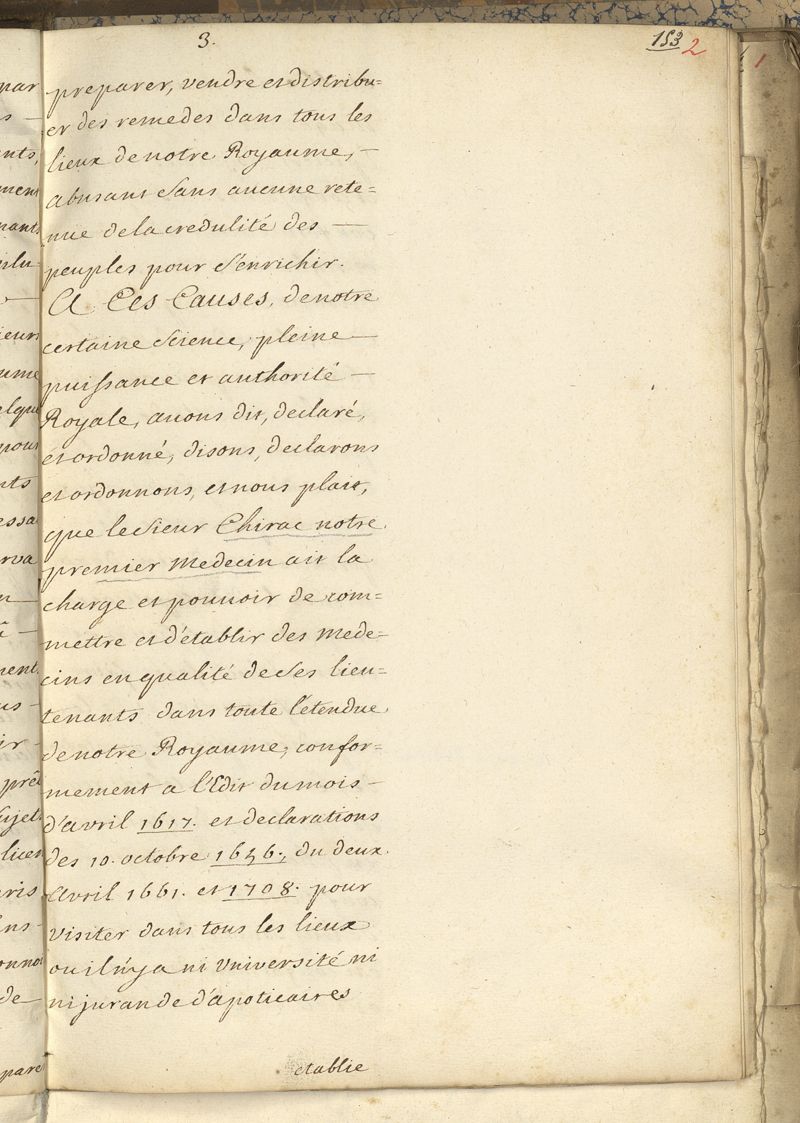 3.
153 2
preparer, vendre et distribu=
er des remedes dans tous les
lieux de notre Royaume, —
abusant sans aucune rete=
nüe de la credulité des —
peuples pour s'enrichir.
A Ces Causes, de notre
certaine Science, pleine —
puissance et authorité —
Royale, avons dit, declaré,
et ordonné, disons, declarons
et ordonnons, et nous plait,
que le Sieur Chirac notre
premier Medecin ait la
charge et pouvoir de com=
mettre et d'établir des Mede=
cins en qualité de ses lieu=
tenants dans toute l'étendue
de notre Royaume, confor=
mement a l'Edit du mois —
d'avril 1617. et declarations
des 10. octobre 1656., du deux
Avril 1661. et 1708. pour
visiter dans tous les lieux
ou il n'y a ni Université ni
ni jurande d'apoticaires
etablie